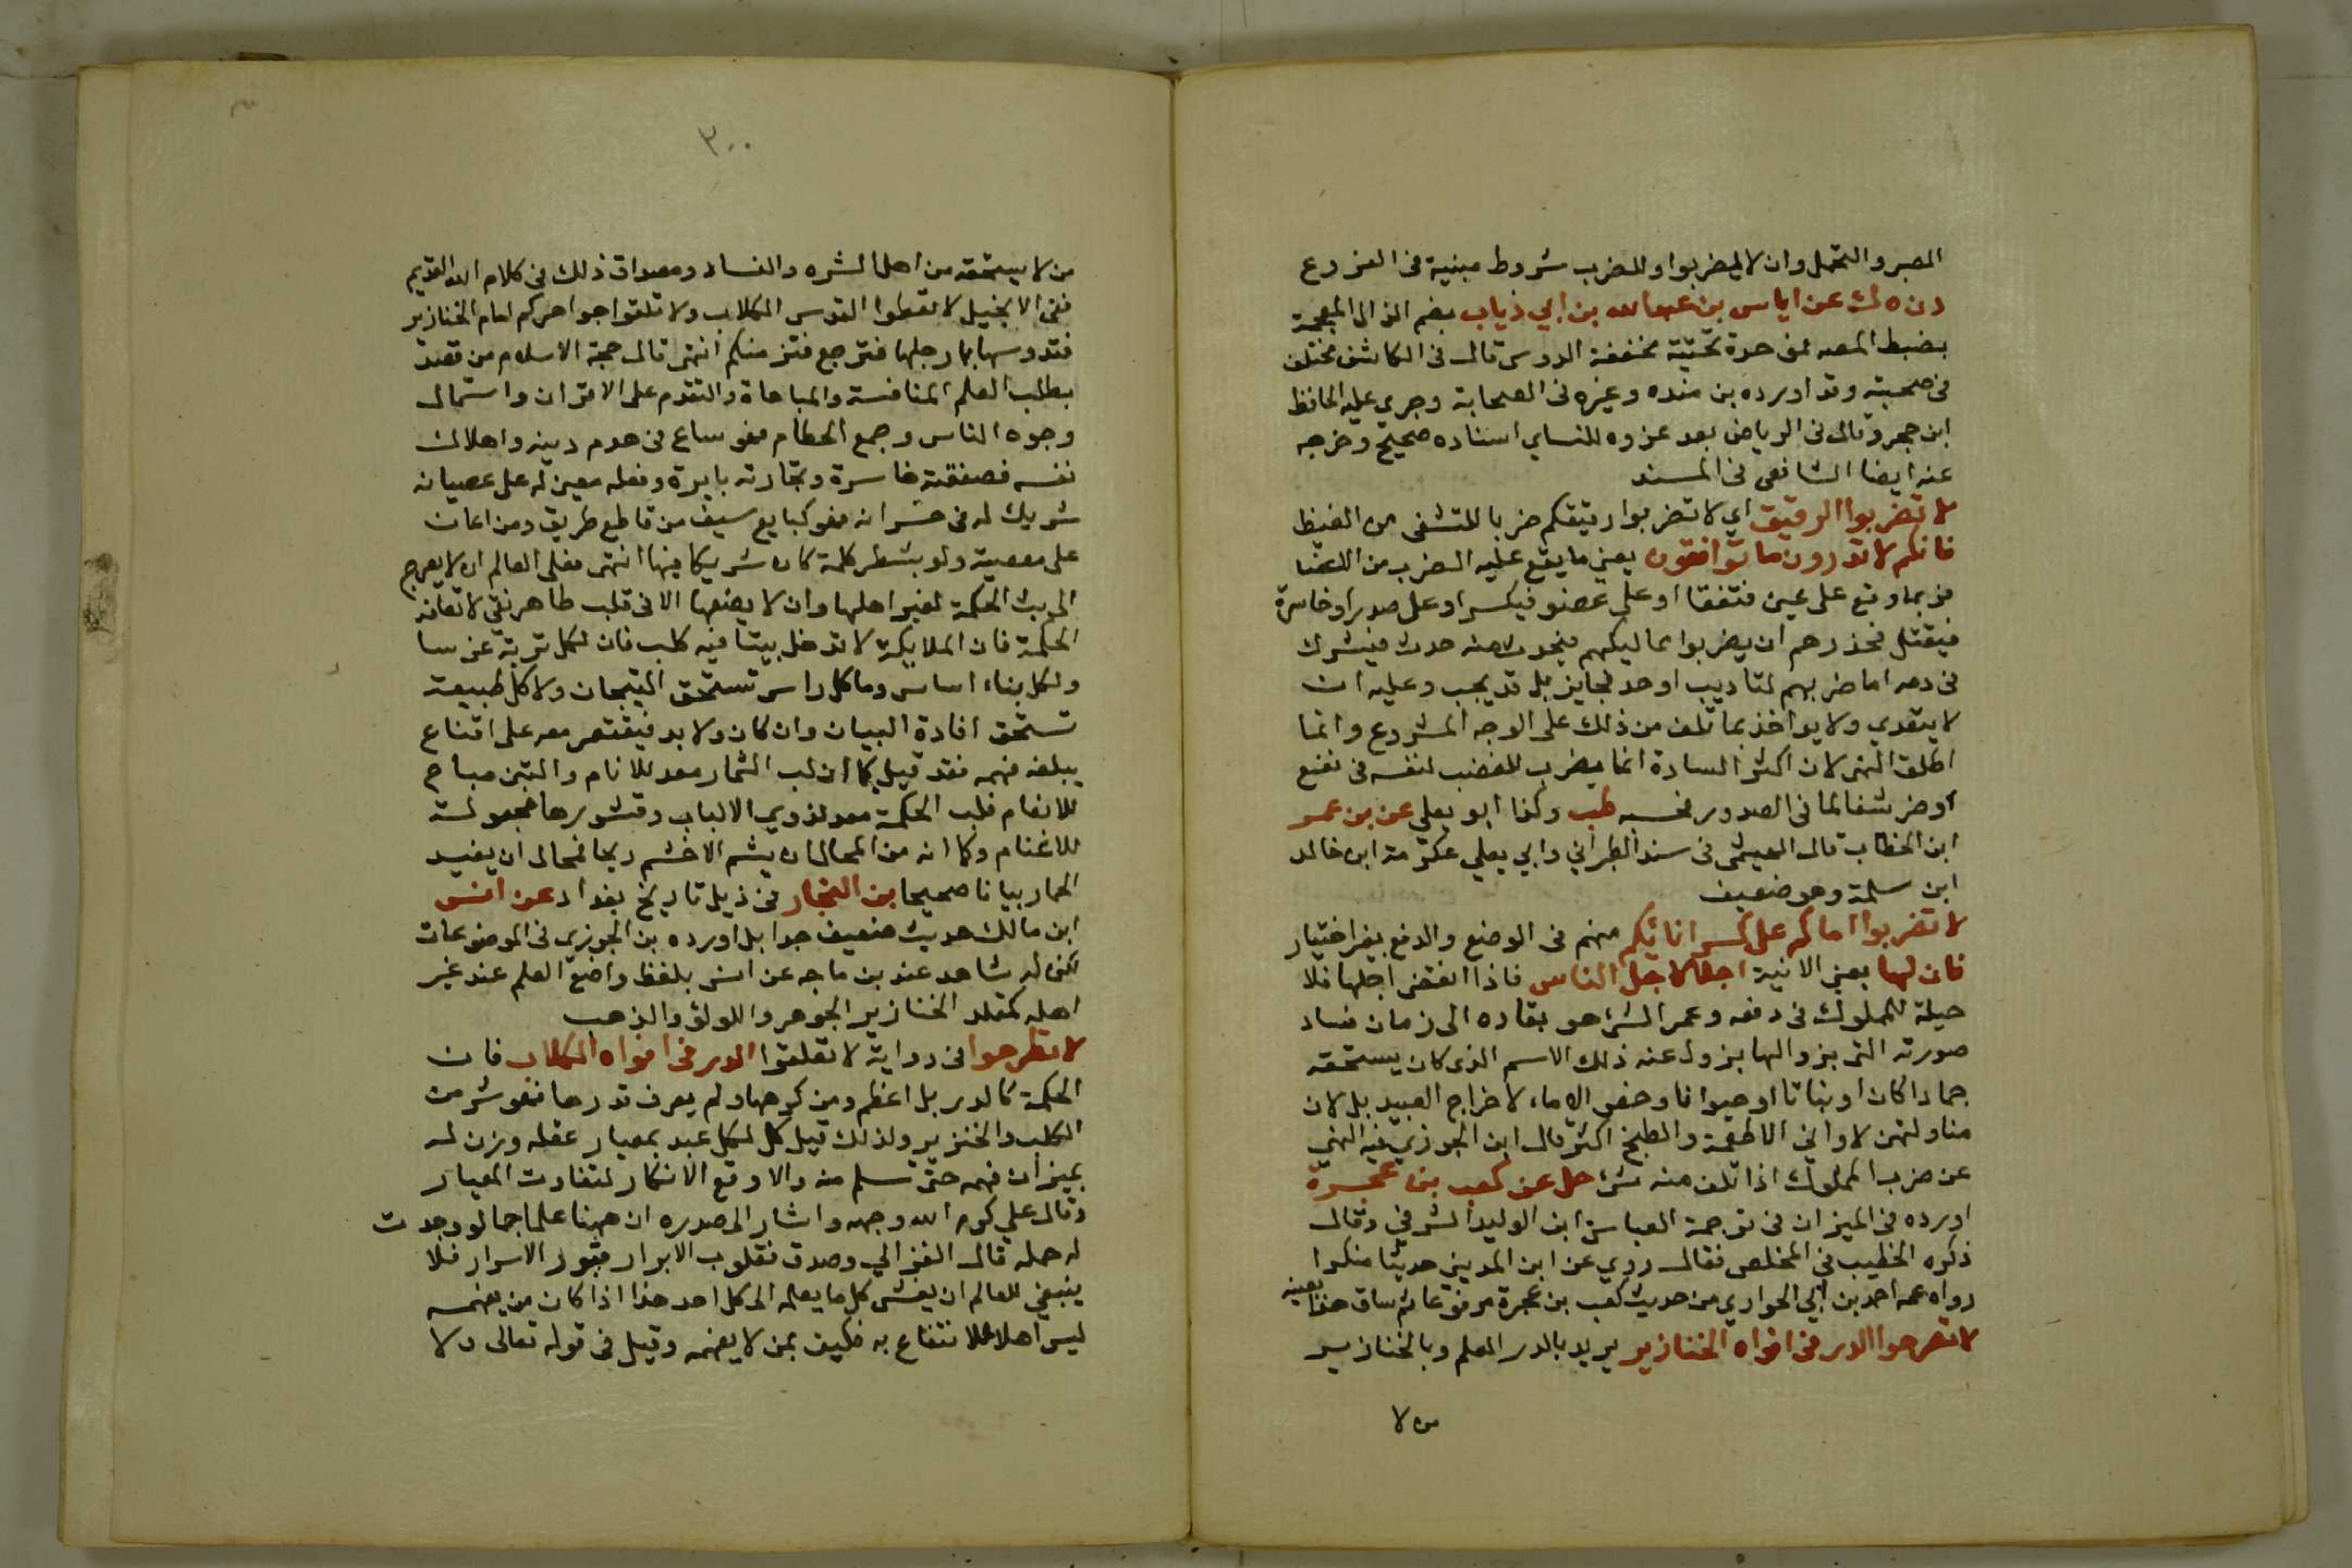 الصبر والتحمل وان لا يضربوا وللضرب شروط مبينة فى الفروع
د ن ه ك عن اياس بن عبد الله بن ابي ذياب بضم الذال المعجمة
بضبط المص بموحدة تحتية مخففة الدوسى قال فى الكاشف مختلف
فى صحبته وقد اورده بن منده وغيره فى الصحابة وجرى عليه الحافظ
ابن حجر وقال فى الرياض بعد عزوه للنساي اسناده صحيح وخرجه
عنه ايضا الشافعى فى المسند
لا تضربوا الرقيق اي لا تضربوا رقيقكم ضربا للتشفى من الغيظ
فانكم لا تدرون ما توافقون يعنى ما يقع عليه الضرب من الاعضا
فربما وقع على عين فتفقا او على عضو فيكسر او على صدر او خاسرة
فيقتل فحذرهم ان يضربوا مماليكهم فيحدث منه حدث فيشرك
فى دمه اما ضربهم لتاديب او حد فجايز بل قد يجب وعليه ان
لا يتعدي ولا يواخذ بما تلف من ذلك على الوجه المشروع وانما
اطلق النهى لان اكثر السادة انما يضرب للغضب لنفسه فى نفع
او ضر شفا لما فى الصدور لنحسه طب وكذا ابو يعلي عن بن عمر
ابن الخطاب قال الهيثمى فى سند الطبراني وابي يعلي عكرمة ابن خالد
ابن سلمة وهو ضعيف
لا تضربوا اماكم على كسر انائكم منهم فى الوضع والدفع بغير اختيار
فان لها يعنى الانية اجلا كاجل الناس فاذا انقضى اجلها فلا
حيلة للمملوك فى دفعه وعمر الشئ هو بقاره الى زمان فساد
صورته التى بزوالها يزول عنه ذلك الاسم الذى كان يستحقه
جمادا كان او نباتا او حيوانا وخص الاماء لا خراج العبيد بل لان
مناولتهن لاواني الاطعمة والطبخ اكثر قال ابن الجوزي فيه النهي
عن ضرب المملوك اذا تلف منه شئ حل عن كعب بن عجرة
اورده فى الميزان فى ترجمة العباس ابن الوليد الشرقي وقال
ذكره الخطيب فى المخلص فقال روي عن ابن المدينى حديثا منكرا
رواه عنه احمد بن ابي الحواري من حديث كعب بن عجرة مرفوعا ثم ساق هذا بعينه
لا تطرحوا الدر فى افواه الخنازير يريد بالدر العلم وبالخنازير
من لا
٣٠٠
من لا يستحقه من اهل الشره والفساد ومصداق ذلك فى كلام الله القديم
ففى الانجيل لا تعطوا القدس الكلاب ولا تلقوا جواهركم امام الخنازير
فتدوسها بارجلها فترجع فتزمنكم انتهى قال حجة الاسلام من قصد
بطلب العلم المنافسة والمباهاة والتقدم على الاقران واستمال
وجوه الناس وجمع الحطام فهو ساع فى هدم دينه واهلاك
نفسه فصفقته خاسرة وتجارته بايرة وفعله معين له على عصيانه
شريك له فى خسرانه فهو كبايع سيف من قاطع طريق ومن اعان
على معصية ولو بشطر كلمة كان شريكا فيها انتهى فعلى العالم ان لا يعرج
الى بث الحكمة لغير اهلها وان لا يضعها الا فى قلب طاهر نقي لا تعانه
الحكمة فان الملايكة لا تدخل بيتا فيه كلب فان لكل تربة غرسا
ولكل بناء اساس وما كل راس تستحق التيجان ولا كل طبيعة
تستحق افادة البيان وان كان ولا بد فيقتصر معه على اقناع
يبلغه فهمه فقد قيل كما ان لب الثمار معد للانام والتبن مباح
للانعام فلب الحكمة معد لذوي الالباب وقشورها مجعولة
للاغنام وكما انه من المحال ان يشم الاخشم ريحا فمحال ان يفيد
الحمار بيانا صحيحا بن النجار فى ذيل تاريخ بغداد عن انس
ابن مالك حديث ضعيف جدا بل اورده بن الجوزى فى الموضوعات
لكن له شاهد عند بن ماجه عن انس بلفظ واضع العلم عند غير
اهله كمقلد الخنازير الجوهر واللولؤ والذهب
لا تطرحوا فى رواية لا تعلقوا الدر فى افواه الكلاب فان
الحكمة كالدر بل اعظم ومن كرهها ولم يعرف قدرها فهو شر من
الكلب والخنزير ولذلك قيل كل لكل عبد بمعيار عقله وزن له
بميزان فهمه حتى تسلم منه والا وقع الانكار لتفاوت المعيار
وقال علي كرم الله وجهه واشار الى صدره ان ههنا علما جما لو وجدت
له حمله قال الغزالي وصدق فقلوب الابرار قبور الاسرار فلا
ينبغي للعالم ان يفشى كل ما يعلمه الى كل احد هذا اذا كان من يفهمه
ليس اهلا للانتفاع به فكيف بمن لا يفهمه وقيل فى قوله تعالى ولا